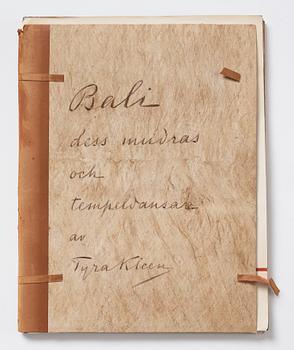 Bali
dess mudras
och
tempeldansare
av
Tyra Kleen